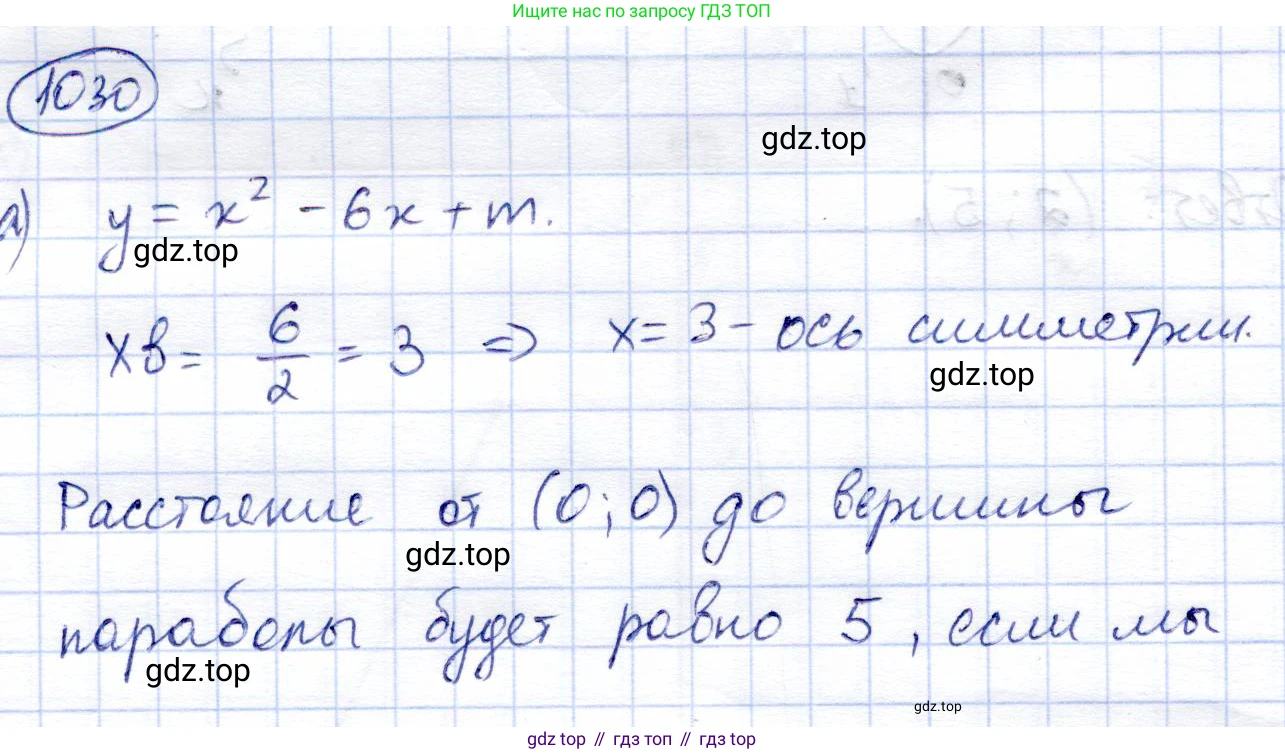 Ищите нас по запросу ГДЗ ТОП
1030
gdz.top
а) y = x² - 6x + m.
gdz.top
xв = 6/2 = 3 => x = 3 - ось симметрии.
gdz.top
Расстояние от (0; 0) до вершины
gdz.top
параболы будет равно 5, если мы
gdz.top
gdz.top
gdz top // гдз топ // гдз top